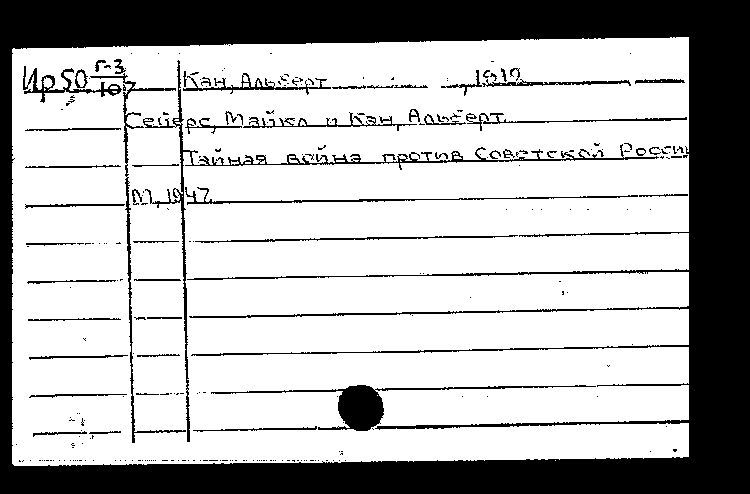 Ир50 Г-3/107 Кан, Альберт , 1912
Сейерс, Майкл и Кан, Альберт.
Тайная война против Советской России
М, 1947.